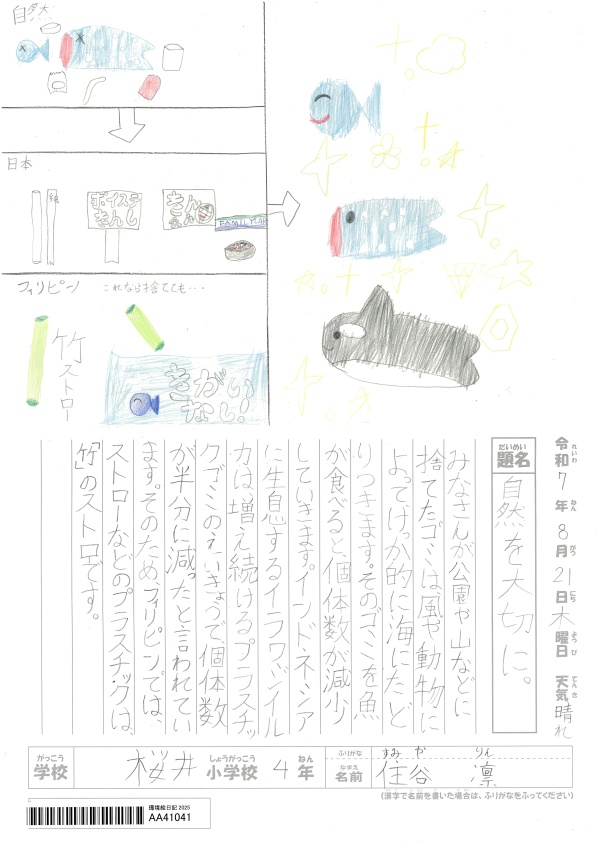 自然
日本
紙
ポイステ
きんし
きん
FAMIL
フィリピン
これなら捨てても・・・
竹ストロー
きがい
なし!
令和7年8月21日木曜日 天気晴れ
れいわ ねん がつ にち ようび てんき
だいめい
題名 自然を大切に。
みなさんが公園や山などに
捨てたゴミは、風や動物に
よってけっか的に海にたど
りつきます。そのゴミを魚
が食べると、個体数が減少
していきます。インドネシア
に生息するイラワジイル
カは増え続けるプラスチッ
クゴミのえいきょうで、個体数
が半分に減ったと言われてい
ます。そのため、フィリピンでは、
ストローなどのプラスチックは、
「竹」のストロです。
がっこう しょうがっこう ねん
学校 桜井小学校4年
ふりがな すみ や りん
なまえ
名前 住谷 凛
(漢字で名前を書いた場合は、ふりがなをふってください)
環境絵日記 2025
AA41041